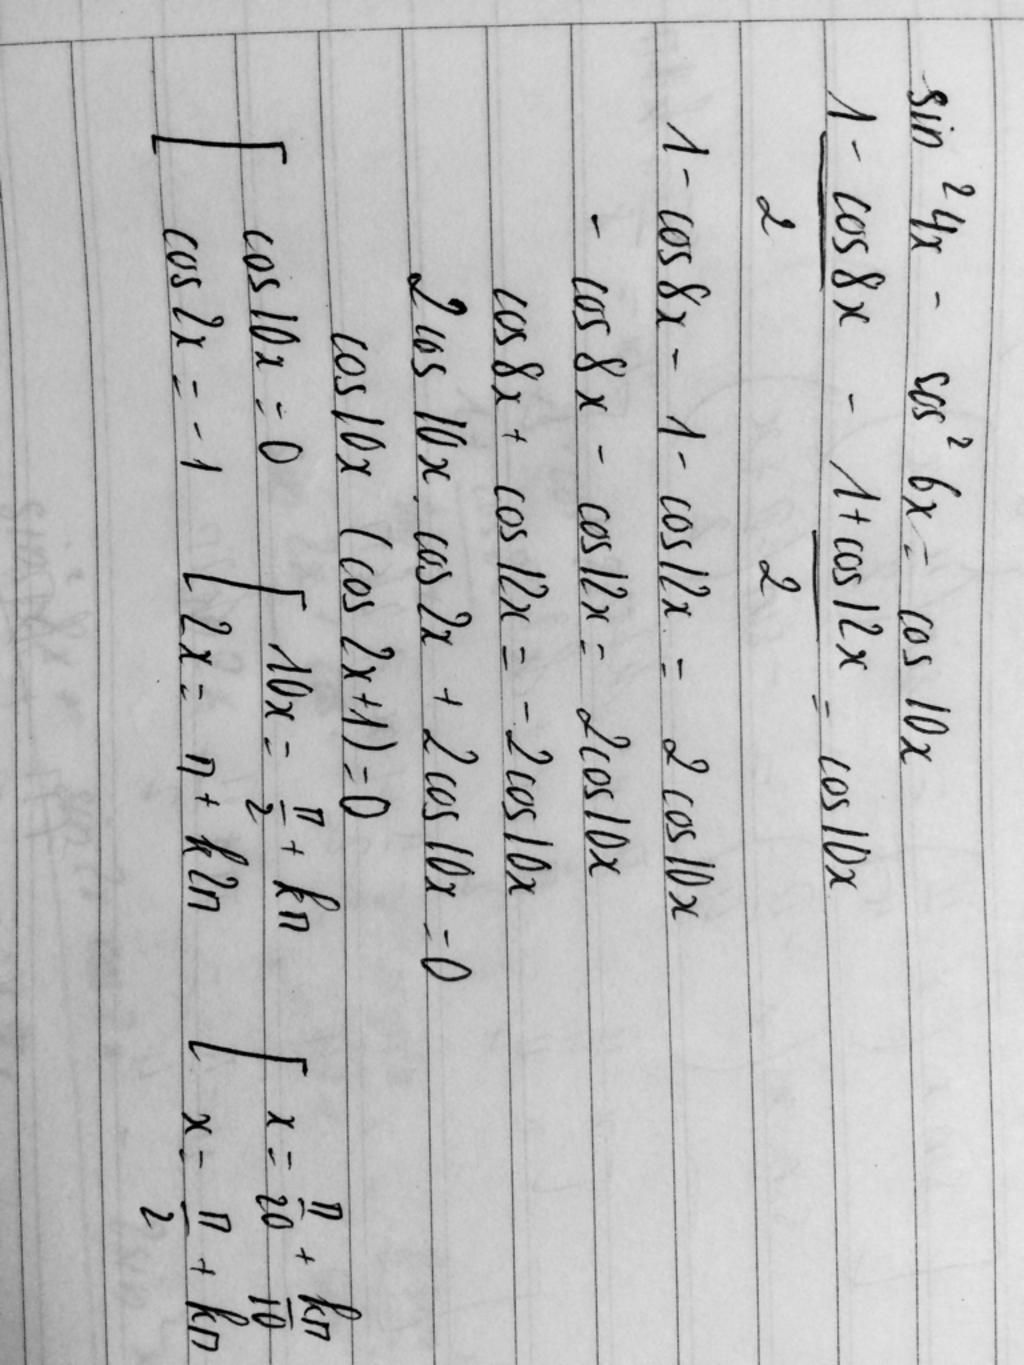 sin² 4x - cos² 6x = cos 10x
1 - cos 8x / 2 - 1 + cos 12x / 2 = cos 10x
1 - cos 8x - 1 - cos 12x = 2 cos 10x
- cos 8x - cos 12x = 2 cos 10x
cos 8x + cos 12x = - 2 cos 10x
2 cos 10x . cos 2x + 2 cos 10x = 0
cos 10x (cos 2x + 1) = 0
[ cos 10x = 0 [ 10x = π/2 + kπ [ x = π/20 + kπ/10
cos 2x = - 1 2x = π + k2π x = π/2 + kπ